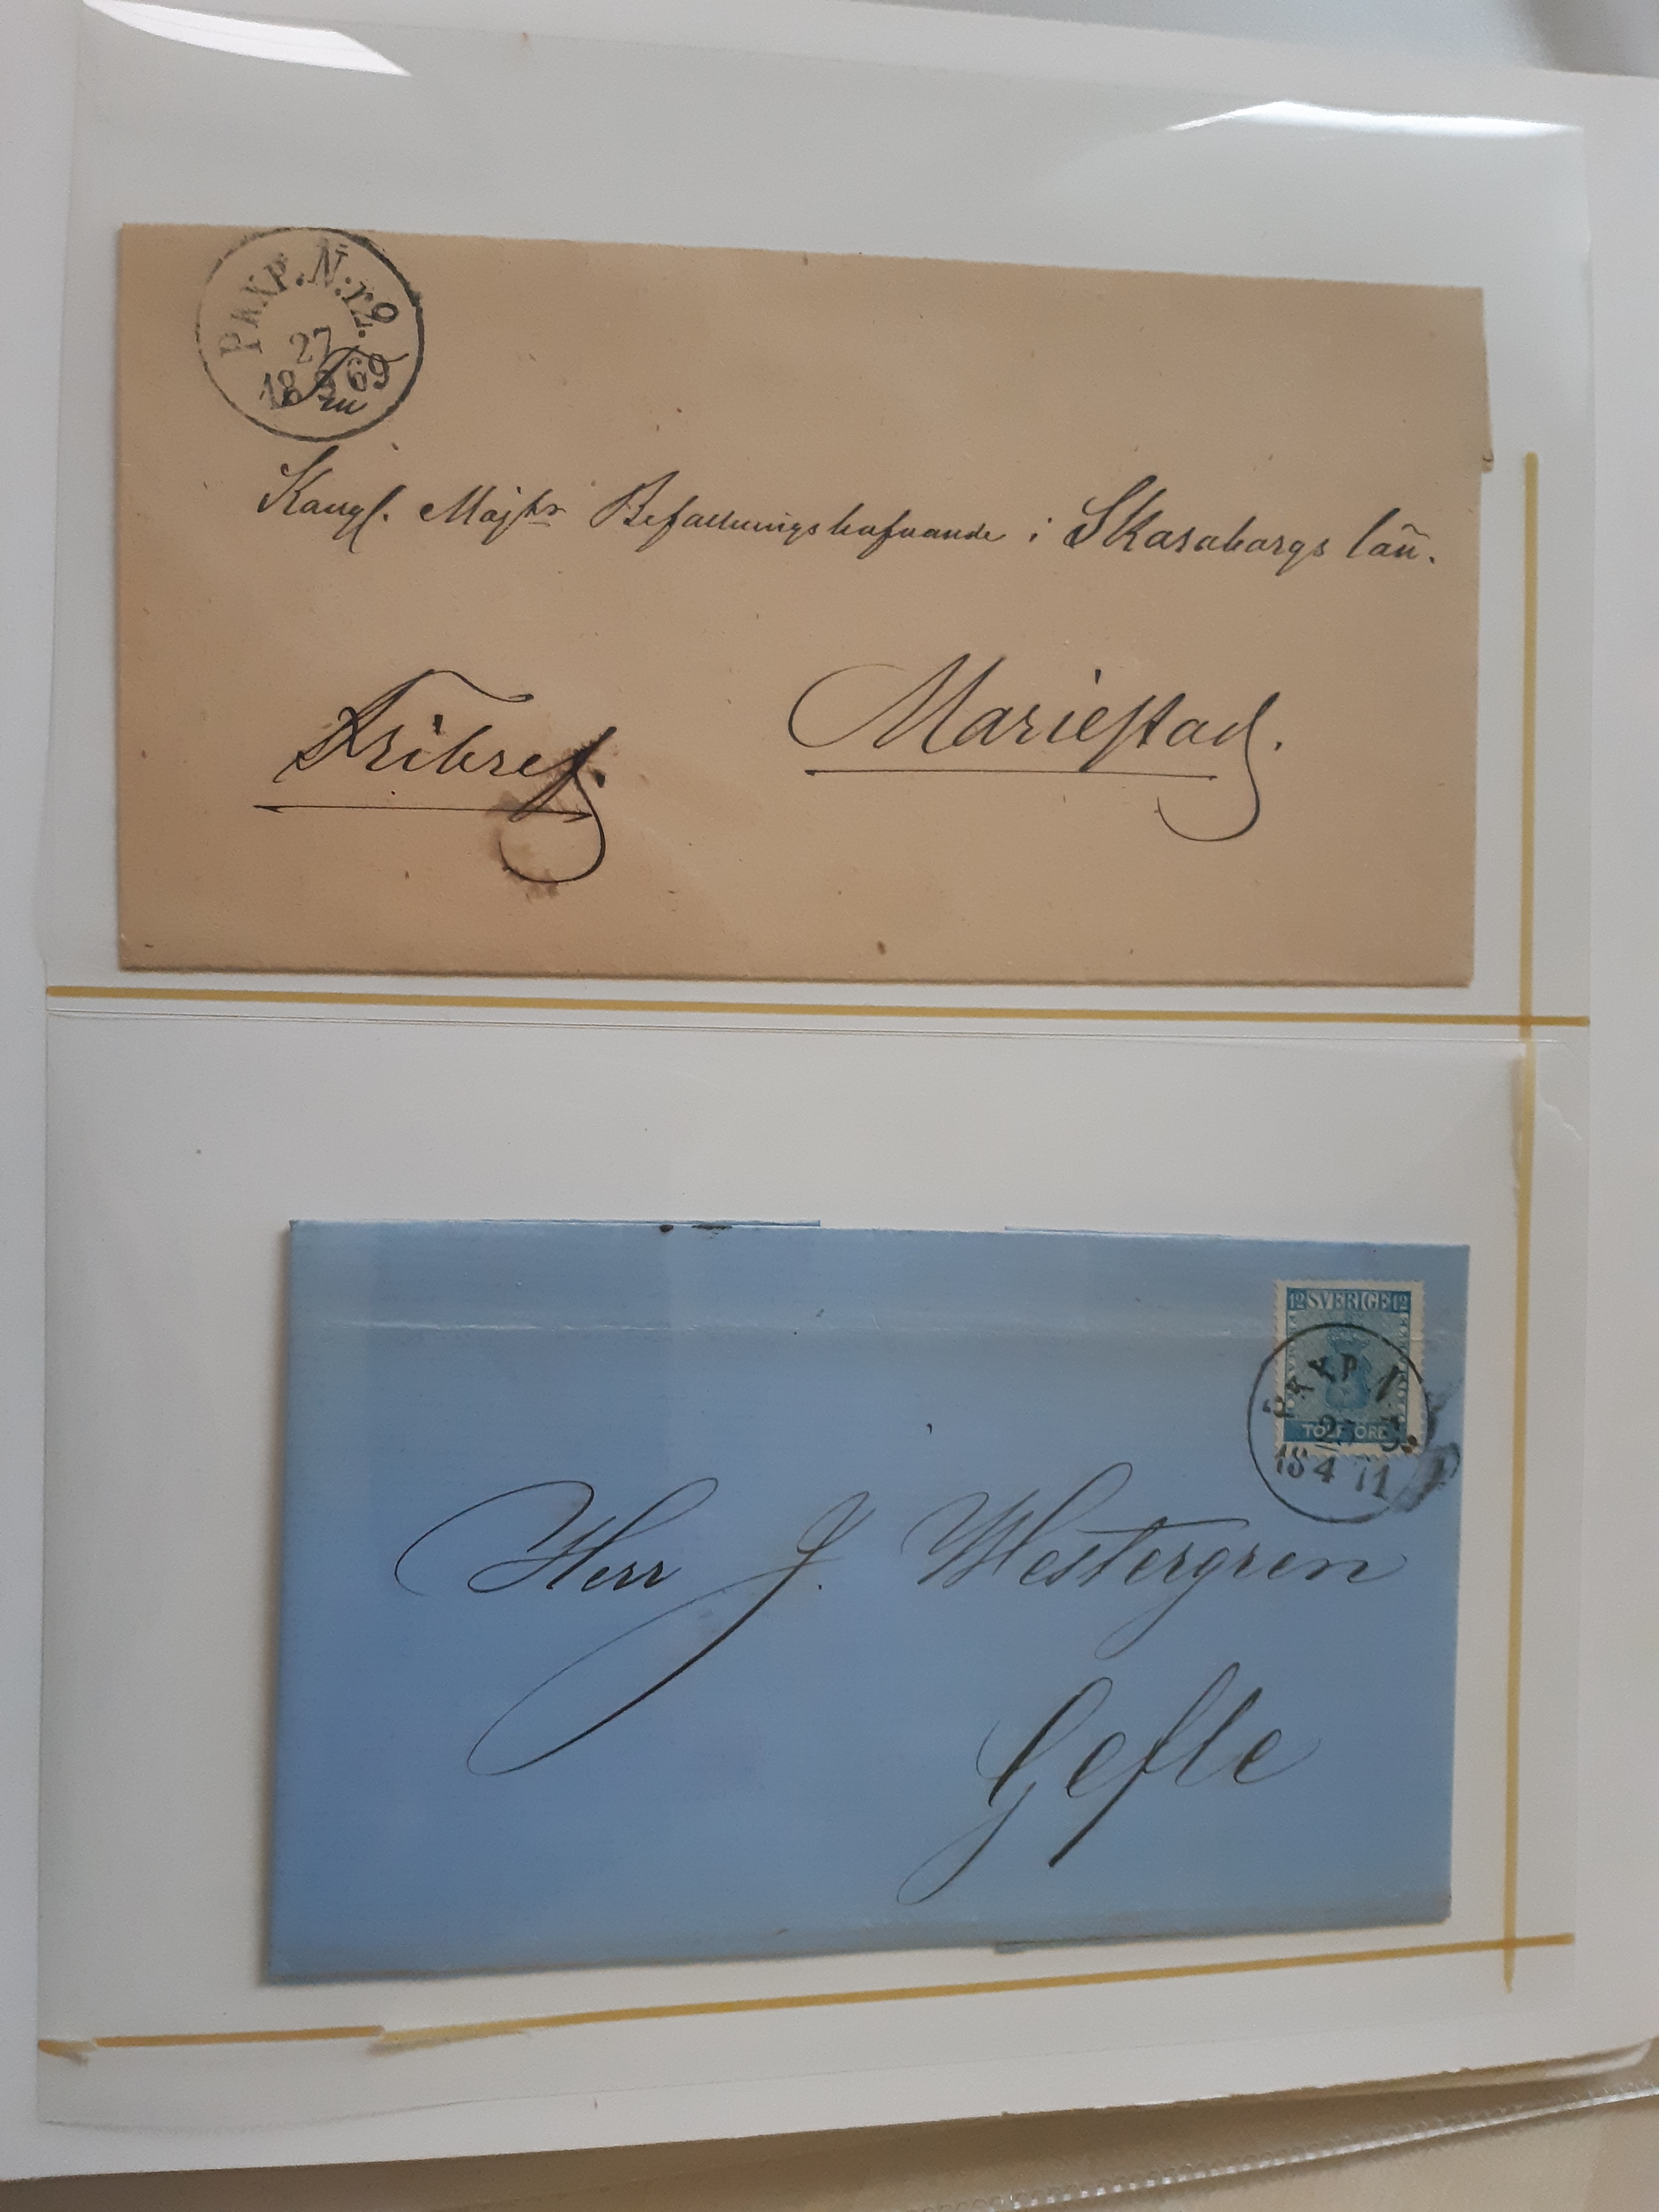 PKXP.N:r2.
27
18 69
Kongl. Majts Befallningshafvande i Skaraborgs län.
Fribref.
Mariestad.
12 SVERIGE 12
TOLF ÖRE
PKXP
18 4 71
Herr J. Westergren
Gefle